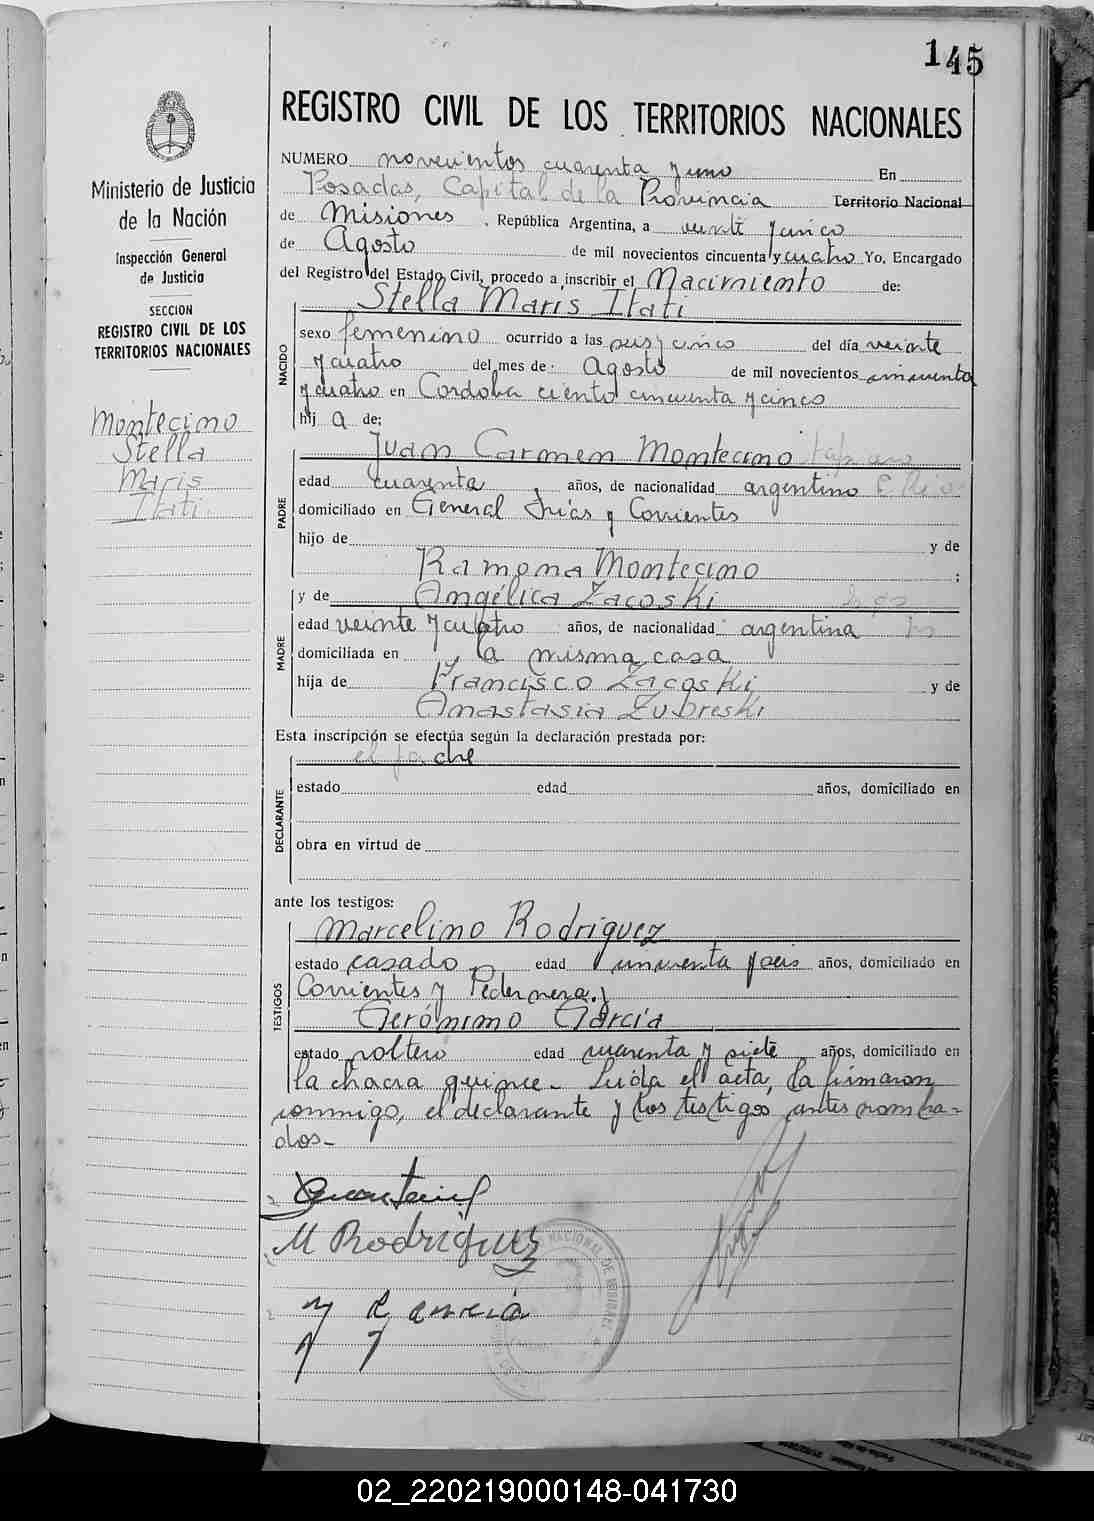 145
REGISTRO CIVIL DE LOS TERRITORIOS NACIONALES
Ministerio de Justicia
de la Nación
Inspección General
de Justicia
SECCION
REGISTRO CIVIL DE LOS
TERRITORIOS NACIONALES
Montecino
Stella
Maris
Itati
NUMERO novecientos cuarenta y uno En
Posadas, Capital de la Provincia Territorio Nacional
de Misiones, República Argentina, a veinte y cinco
de Agosto de mil novecientos cincuenta y cuatro Yo, Encargado
del Registro del Estado Civil, procedo a inscribir el Nacimiento de:
Stella Maris Itati
NACIDO
sexo femenino ocurrido a las seis y cinco del día veinte
y cuatro del mes de Agosto de mil novecientos cincuenta
y cuatro en Cordoba ciento cincuenta y cinco
hij a de:
Juan Carmen Montecino
PADRE
edad cuarenta años, de nacionalidad argentino
domiciliado en General Frías y Corrientes
hijo de y de
Ramona Montecino ;
y de Angélica Zacoski
MADRE
edad veinte y cuatro años, de nacionalidad argentina
domiciliada en la misma casa
hija de Francisco Zacoski y de
Anastasia Zubreski
Esta inscripción se efectúa según la declaración prestada por:
el padre
DECLARANTE
estado edad años, domiciliado en
obra en virtud de
ante los testigos:
Marcelino Rodriguez
TESTIGOS
estado casado edad cincuenta y seis años, domiciliado en
Corrientes y Pedernera. y
Gerónimo Garcia
estado soltero edad cuarenta y siete años, domiciliado en
la chacra quince- Leída el acta, la firmaron
conmigo, el declarante y los testigos antes nombra=
dos-
M Rodriguez
02_220219000148-041730